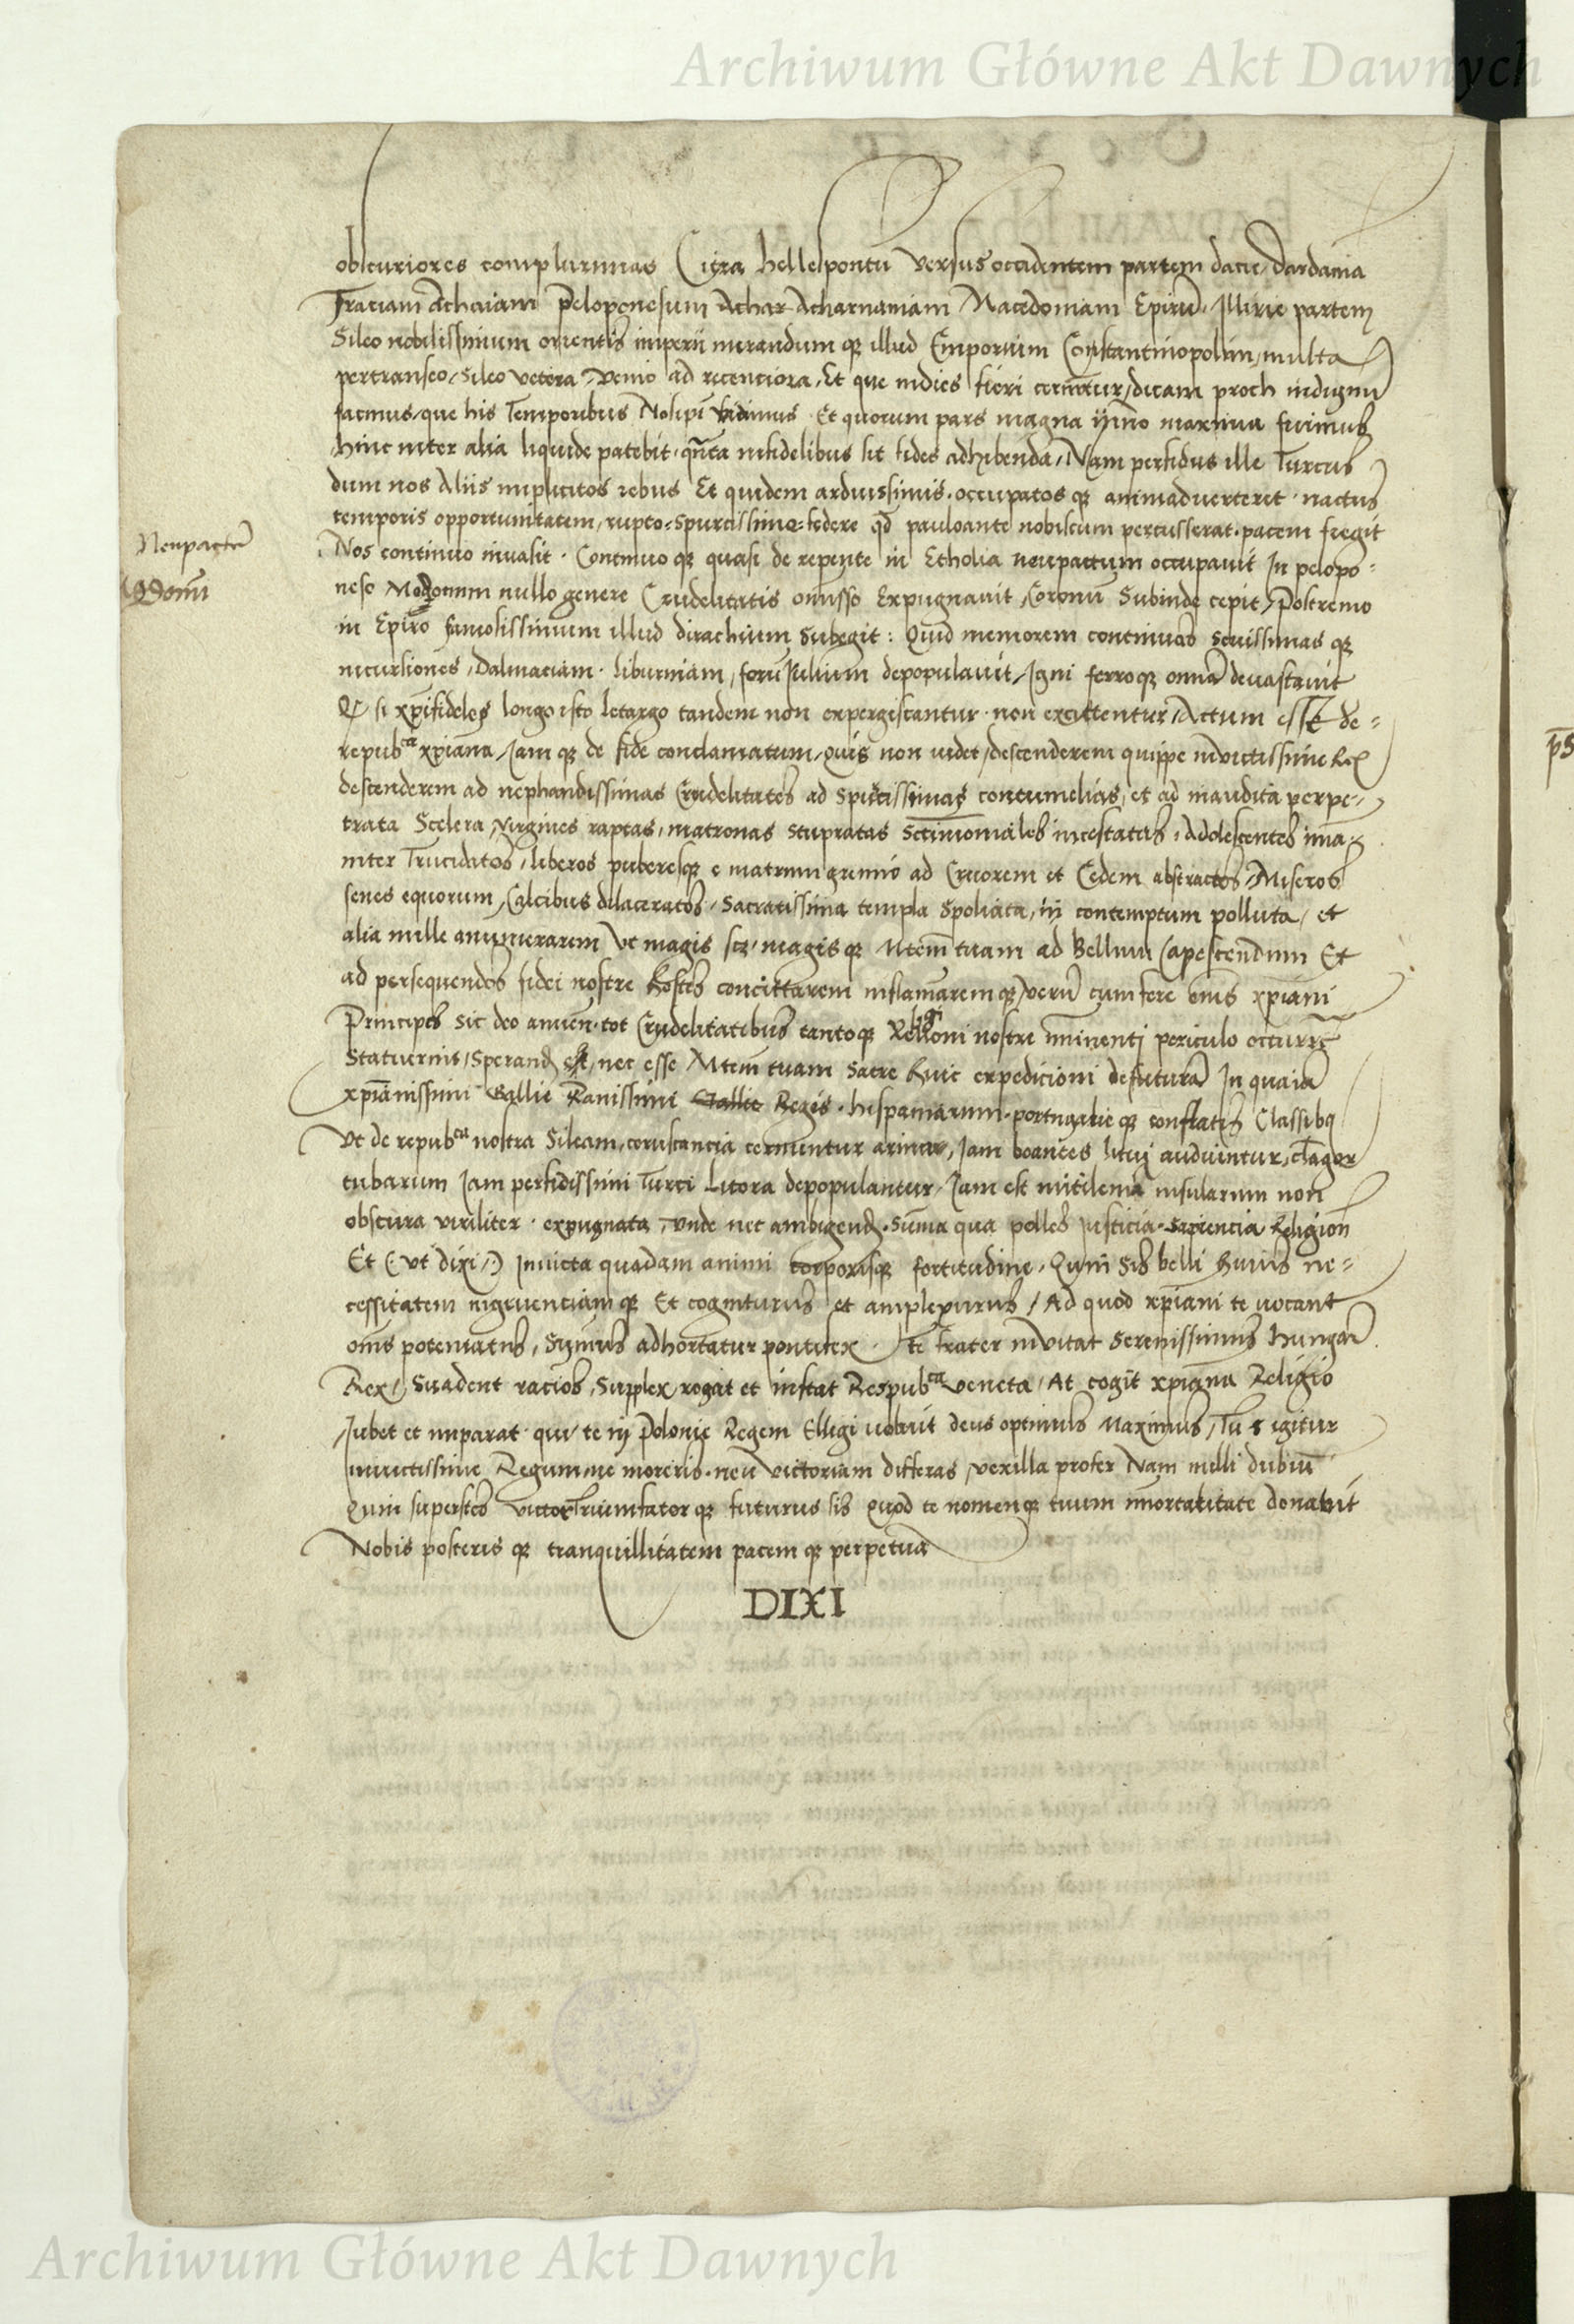 Archiwum Główne Akt Dawnych
obscuriores complurimas Citra hellespontū versus occidentem partem dacie, dardania
Traciam Achaiam Peloponesum Achar Acharnaniam Macedoniam Epirū, Illirie partem
Sileo nobilissimum orientis imperii mirandum qȝ illud Emporium Constantinopolim, multa
pertranseo, sileo vetera, venio ad recenciora, Et que indies fieri cernūtur, dicam proch indignū
facinus, que his Temporibus vidimus Et quorum pars magna ymo maxima fuimus
hinc inter alia liquide patebit, qn̄ta infidelibus sit fides adhibenda, Nam perfidus ille Turcus
dum nos Aliis implicitos rebus Et quidem arduissimis, occupatos qȝ animadverterit, nactus
temporis opportunitatem, rupto spurcissimo federe qd̄ pauloante nobiscum percusserat, pacem fregit
Neupactū
Nos continuo invasit. Continuo qȝ quasi de repente in Etholia neupactum occupavit In pelopo-
neso Modonum nullo genere Crudelitatis omisso Expugnavit, Coronū Subinde cepit, Postremo
in Epiro famosissimum illud dirachium Subegit: Quid memorem continuas sevissimas qȝ
incursiones, Dalmaciam, liburniam, forū Julium depopulavit, Igni ferroqȝ omnia devastavit
Q si xp̄ifideles longo isto letargo tandem non expergiscantur, non excitentur, Actum esset de-
repubca xp̄iana, Jam qȝ de fide conclamatum, quis non videt, descenderem quippe invictissime Rex
descenderem ad nephandissimas Crudelitates ad spurcissimas contumelias, et ad inaudita perpe-
trata Scelera, virgines raptas, matronas stupratas Sctimoniales incestatas, Adolescentes ima-
niter Trucidatos, liberos puberesqȝ e matrum gremio ad Cruorem et Cedem abstractos, Miseros
senes equorum Calcibus dilaceratos, Sacratissima templa Spoliata, in contemptum polluta, et
alia mille anumerarem Ut magis magisqȝ Mtem̄ tuam ad Bellum Capescendum Et
ad persequendos fidei nostre hostes concittarem inflamarem qȝ, verū cum fere om̄s xp̄iani
Principes sic deo anuen. tot Crudelitatibus tantoqȝ Religioni nostre iminenti periculo occurrē
Statuerint, Sperand est, nec esse Mtem̄ tuam Sacre huic expedicioni defuturā In quā iā
xp̄ianissimi Gallie Regis, hispaniarum, portugalie qȝ conflatis Classibȝ
Ut de repubca nostra Sileam, coruscancia cernuntur arma, Jam boantes litui audiuntur, clāgor
tubarum Jam perfidissimi Turci Litora depopulantur, Jam est mitilena insularum non
obscura viriliter expugnata, Unde nec ambigend. Suma qua polles Justicia, sapiencia Religion
Et (ut dixi) Invicta quadam animi corporisqȝ fortitudine, Quin Sis belli huius ne-
cessitatem ingruenciam qȝ Et cogniturus et amplexurus, Ad quod xp̄iani te vocant
om̄s potentatus, Sumus adhortatur pontifex, te frater invitat Serenissimus hungar
Rex, Suadent racios, Supplex rogat et instat Respubca veneta, At cogit xp̄iana Religio
Jubet et imparat qui te in Polonie Regem Elligi voluit deus optimus Maximus, Tu igitur
invictissime Regum, ne moreris, neu victoriam differas, vexilla profer Nam nulli dubiū
Quin superstes victor Triumfator qȝ futurus sis Quod te nomenqȝ tuum imortalitate donabit
Nobis posteris qȝ tranquillitatem pacem qȝ perpetuā
DIXI
Archiwum Główne Akt Dawnych